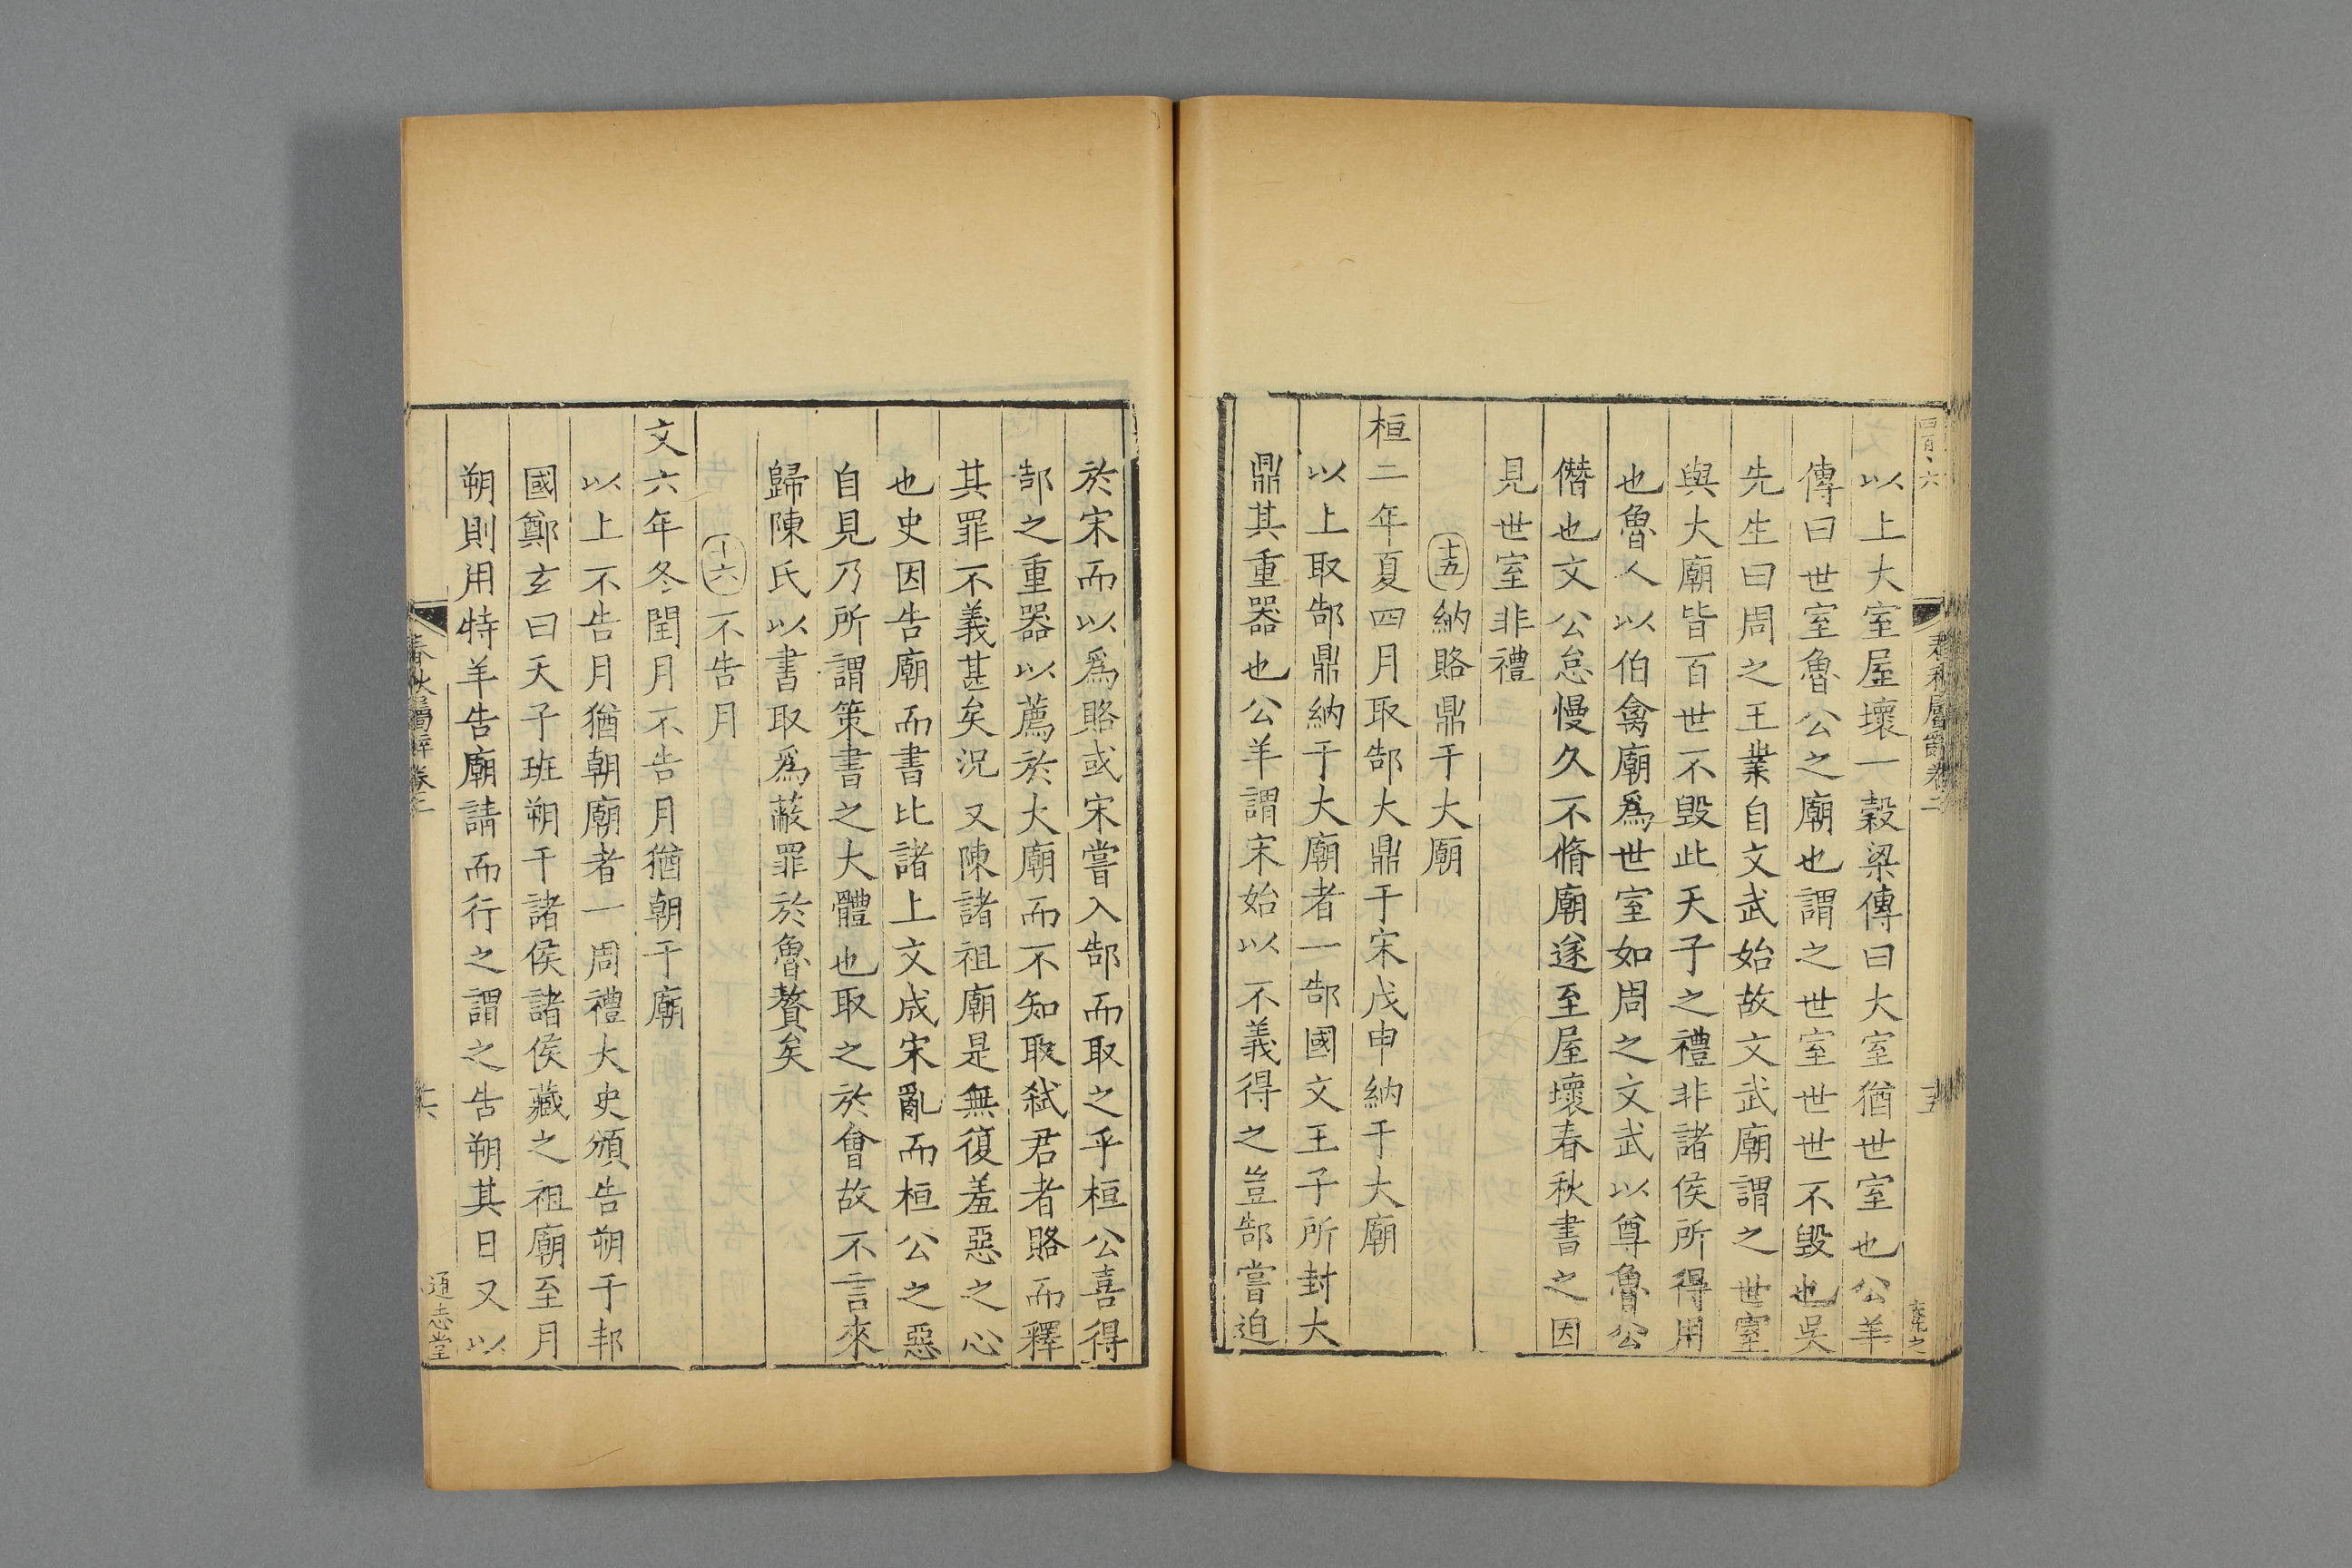 四百六
春秋屬辭卷二
十五
以上大室屋壞一穀梁傳曰大室猶世室也公羊
傳曰世室魯公之廟也謂之世室世世不毀也吳
先生曰周之王業自文武始故文武廟謂之世室
與大廟皆百世不毀此天子之禮非諸侯所得用
也魯人以伯禽廟爲世室如周之文武以尊魯公
僭也文公怠慢久不脩廟遂至屋壞春秋書之因
見世室非禮
十五納賂鼎于大廟
桓二年夏四月取郜大鼎于宋戊申納于大廟
以上取郜鼎納于大廟者一郜國文王子所封大
鼎其重器也公羊謂宋始以不義得之豈郜嘗迫
於宋而以爲賂或宋嘗入郜而取之乎桓公喜得
郜之重器以薦於大廟而不知取弑君者賂而釋
其罪不義甚矣況又陳諸祖廟是無復羞惡之心
也史因告廟而書比諸上文成宋亂而桓公之惡
自見乃所謂策書之大體也取之於會故不言來
歸陳氏以書取爲蔽罪於魯贅矣
十六不告月
文六年冬閏月不告月猶朝于廟
以上不告月猶朝廟者一周禮大史頒告朔于邦
國鄭玄曰天子班朔于諸侯諸侯藏之祖廟至月
朔則用特羊告廟請而行之謂之告朔其日又以
春秋屬辭卷二
十六
通志堂